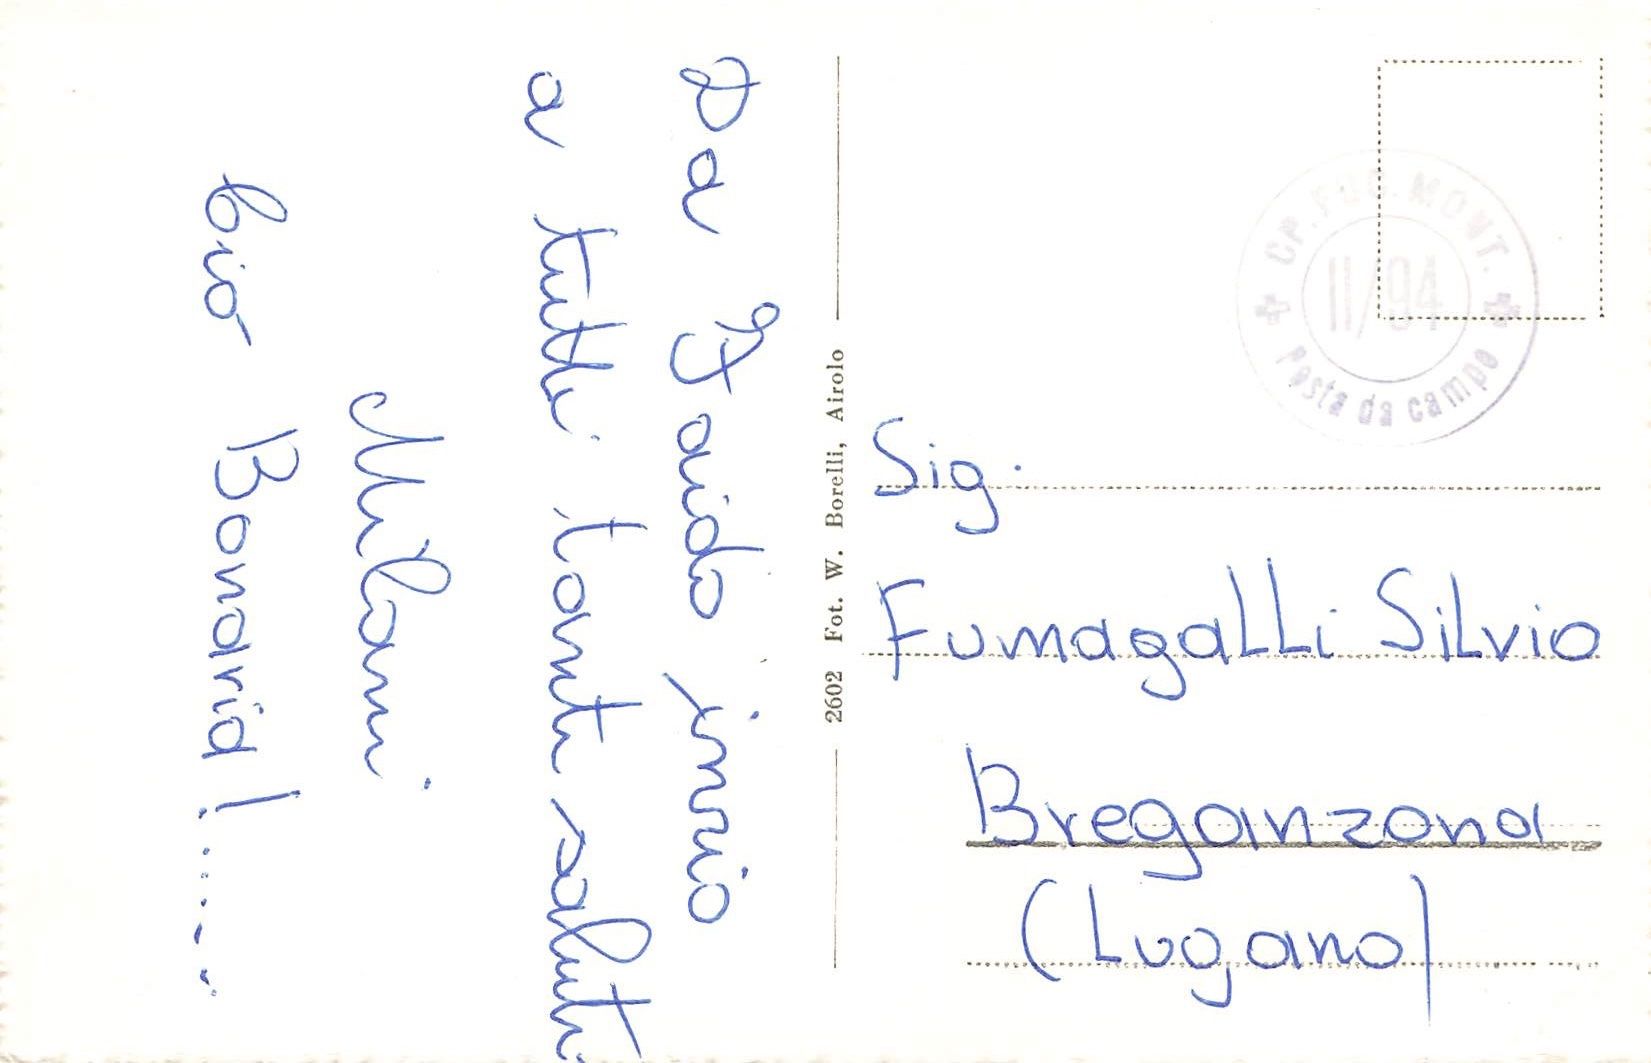 Da Faido invio
a tutti tanti saluti
Milani
Bonaria!......
2602 Fot. W. Borelli, Airolo
CP. FUC. MONT.
II/94
Posta da campo
Sig.
Fumagalli Silvio
Breganzona
(Lugano)